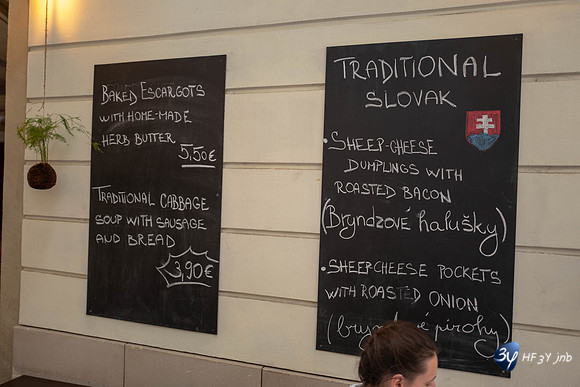 BAKED ESCARGOTS
WITH HOME-MADE
HERB BUTTER
5,50€
TRADITIONAL CABBAGE
SOUP WITH SAUSAGE
AND BREAD
3,90€
TRADITIONAL
SLOVAK
• SHEEP-CHEESE
DUMPLINGS WITH
ROASTED BACON
(Bryndzové halušky)
• SHEEPCHEESE POCKETS
WITH ROASTED ONION
pirohy)
3y HF 3Y jnb